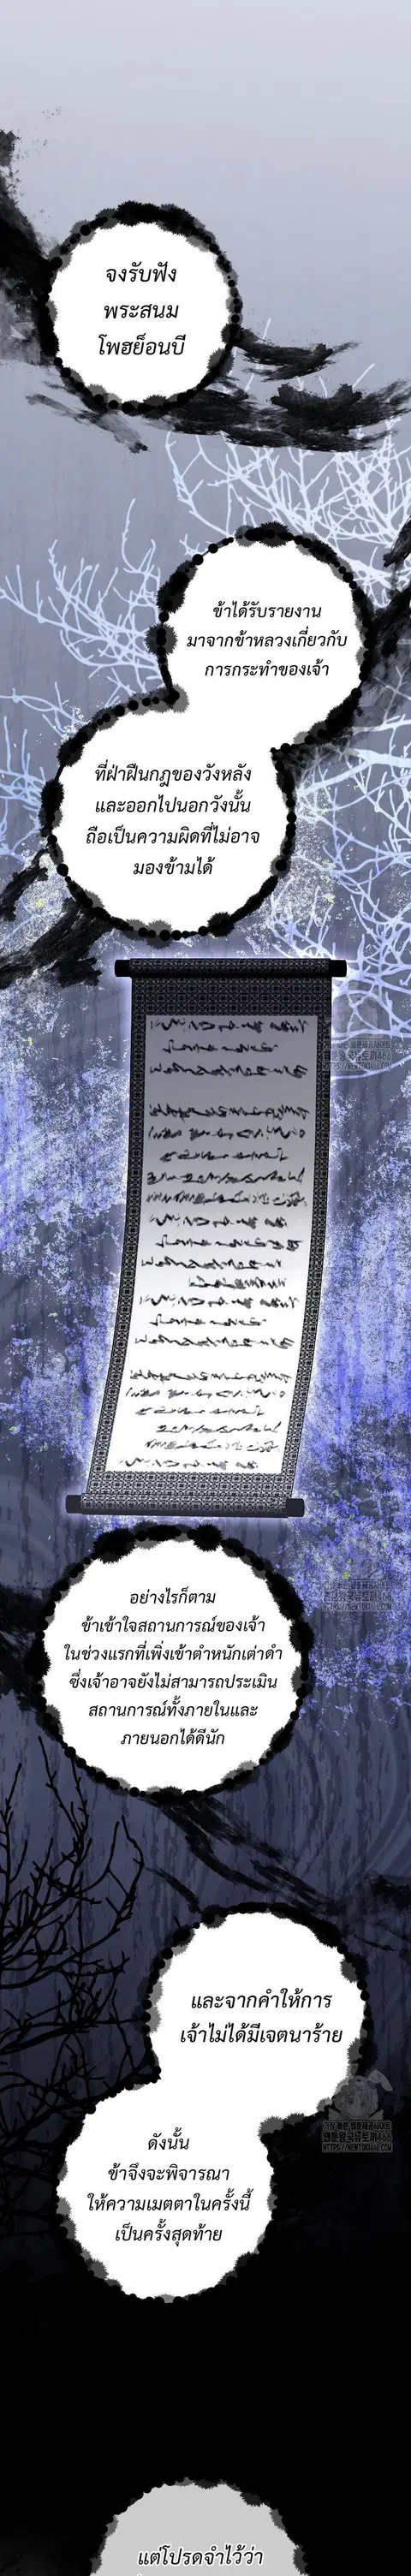 จงรับฟัง
พระสนม
โพฮย็อนบี
ข้าได้รับรายงาน
มาจากข้าหลวงเกี่ยวกับ
การกระทำของเจ้า
ที่ฝ่าฝืนกฎของวังหลัง
และออกไปนอกวังนั้น
ถือเป็นความผิดที่ไม่อาจ
มองข้ามได้
อย่างไรก็ตาม
ข้าเข้าใจสถานการณ์ของเจ้า
ในช่วงแรกที่เพิ่งเข้าตำหนักเต่าดำ
ซึ่งเจ้าอาจยังไม่สามารถประเมิน
สถานการณ์ทั้งภายในและ
ภายนอกได้ดีนัก
และจากคำให้การ
เจ้าไม่ได้มีเจตนาร้าย
ดังนั้น
ข้าจึงจะพิจารณา
ให้ความเมตตาในครั้งนี้
เป็นครั้งสุดท้าย
แต่โปรดจำไว้ว่า